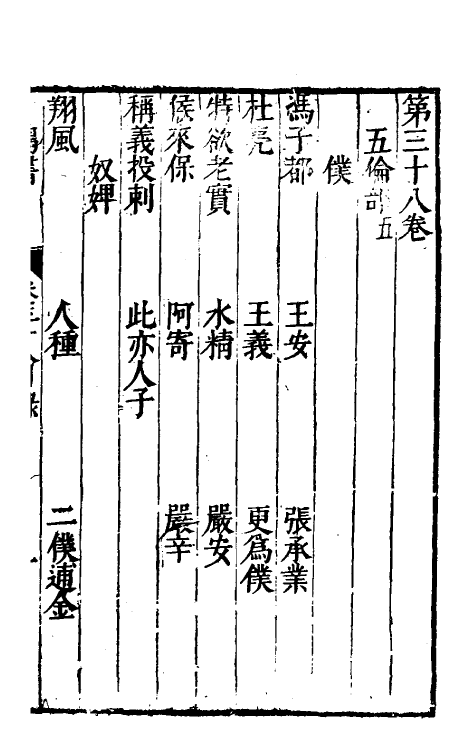 第三十八卷
五倫部五
僕
馮子都 王安 張承業
杜亮 王義 更爲僕
特欲老實 水精 嚴安
侯來保 阿寄 嚴辛
稱義投刺 此亦人子
奴婢
翔風 人種 二僕逋金